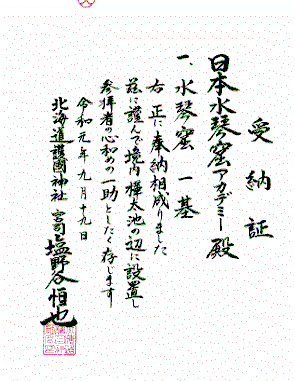 受納証
日本水琴窟アカデミー殿
一、水琴窟 一基
右 正に奉納相成りました
茲に謹んで境内樺太池の辺に設置し
参拝者の心和めの一助としたく存じます
令和元年九月十九日
北海道護國神社 宮司 塩野谷恒也